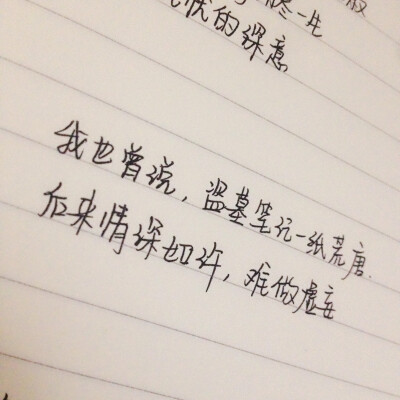 一生
的深意
我也曾说，盗墓笔记一纸荒唐.
后来情深如许，难做虚妄